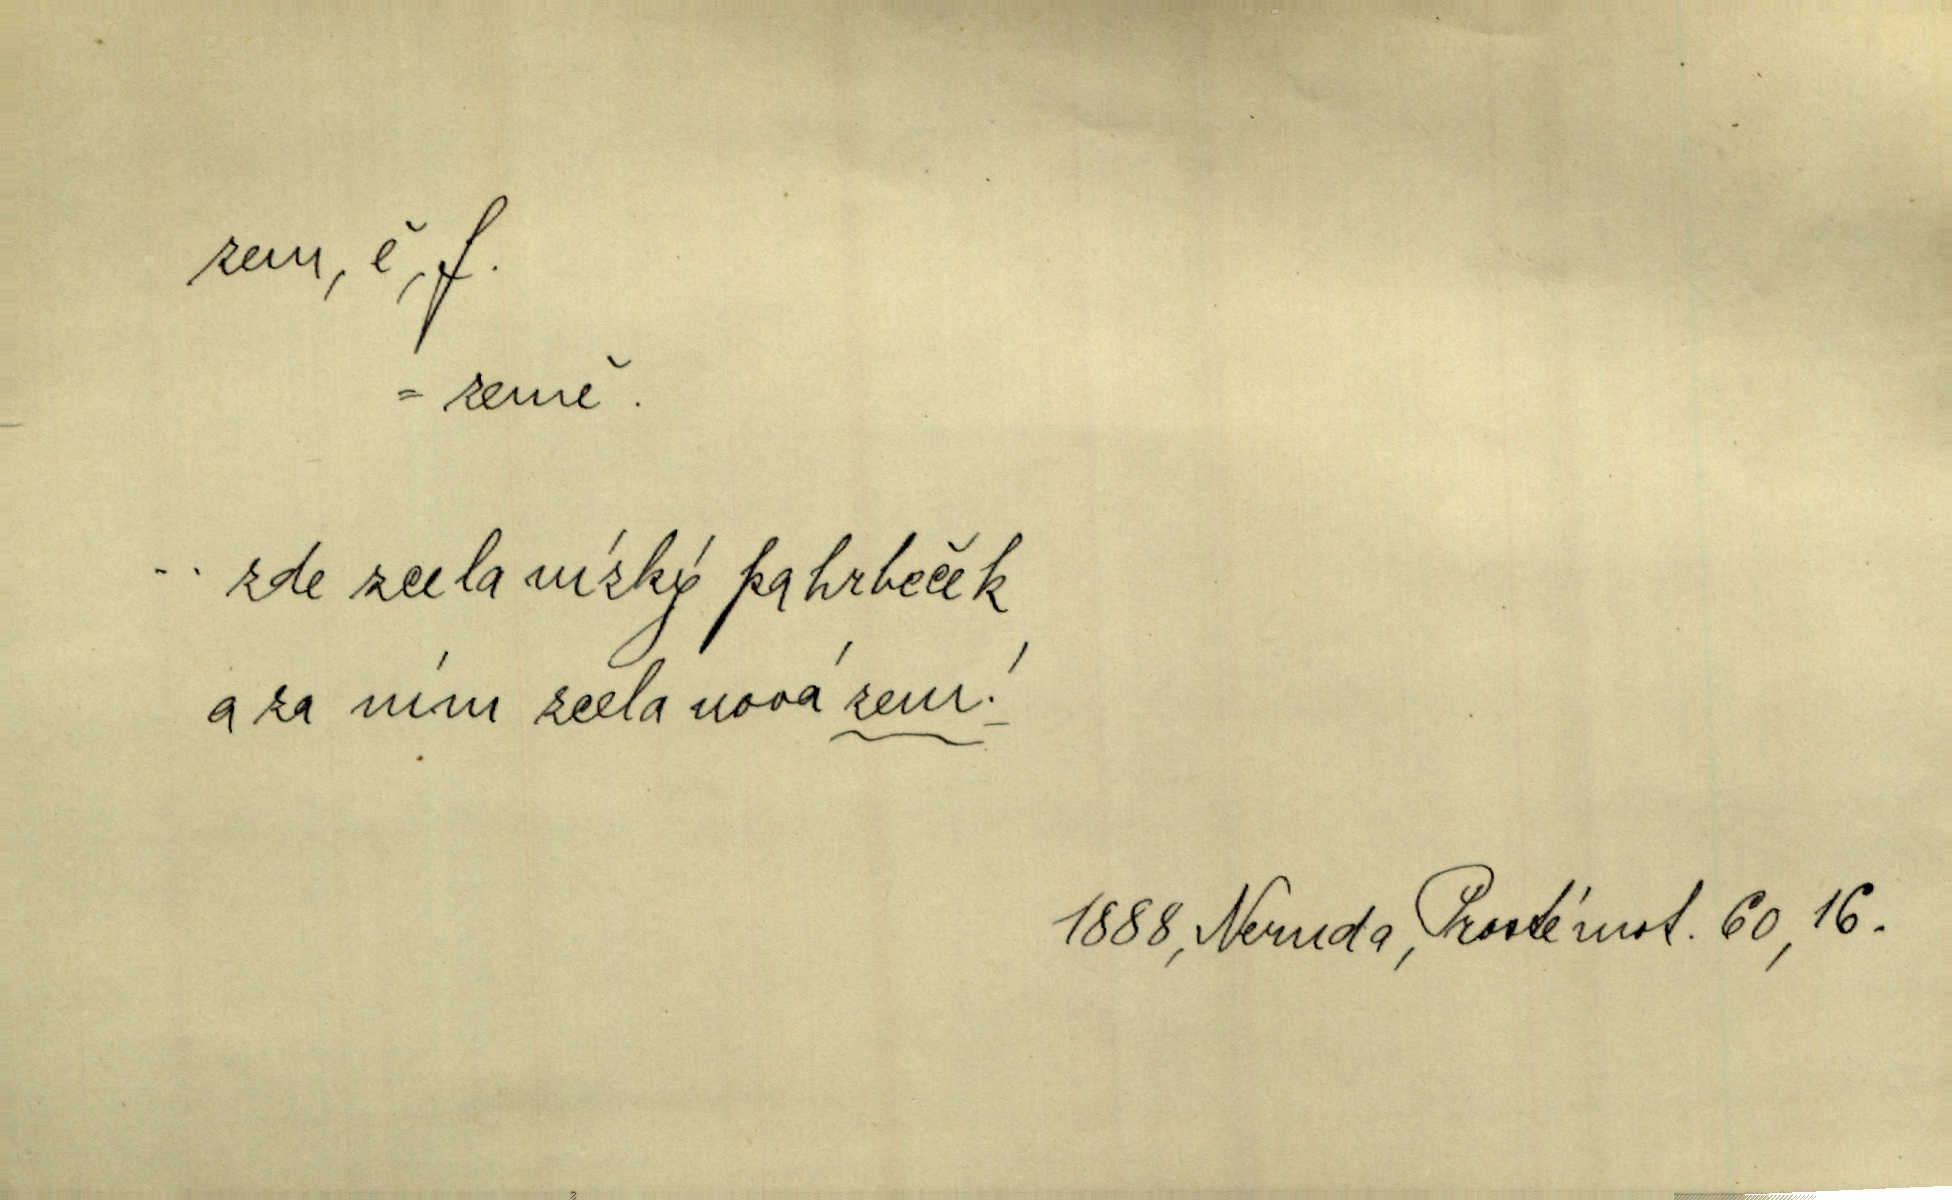 zem, ě, f.
= země.
.. zde zcela nízký pahrbeček
a za ním zcela nová zem!
1888, Neruda, Prosté mot. 60, 16.